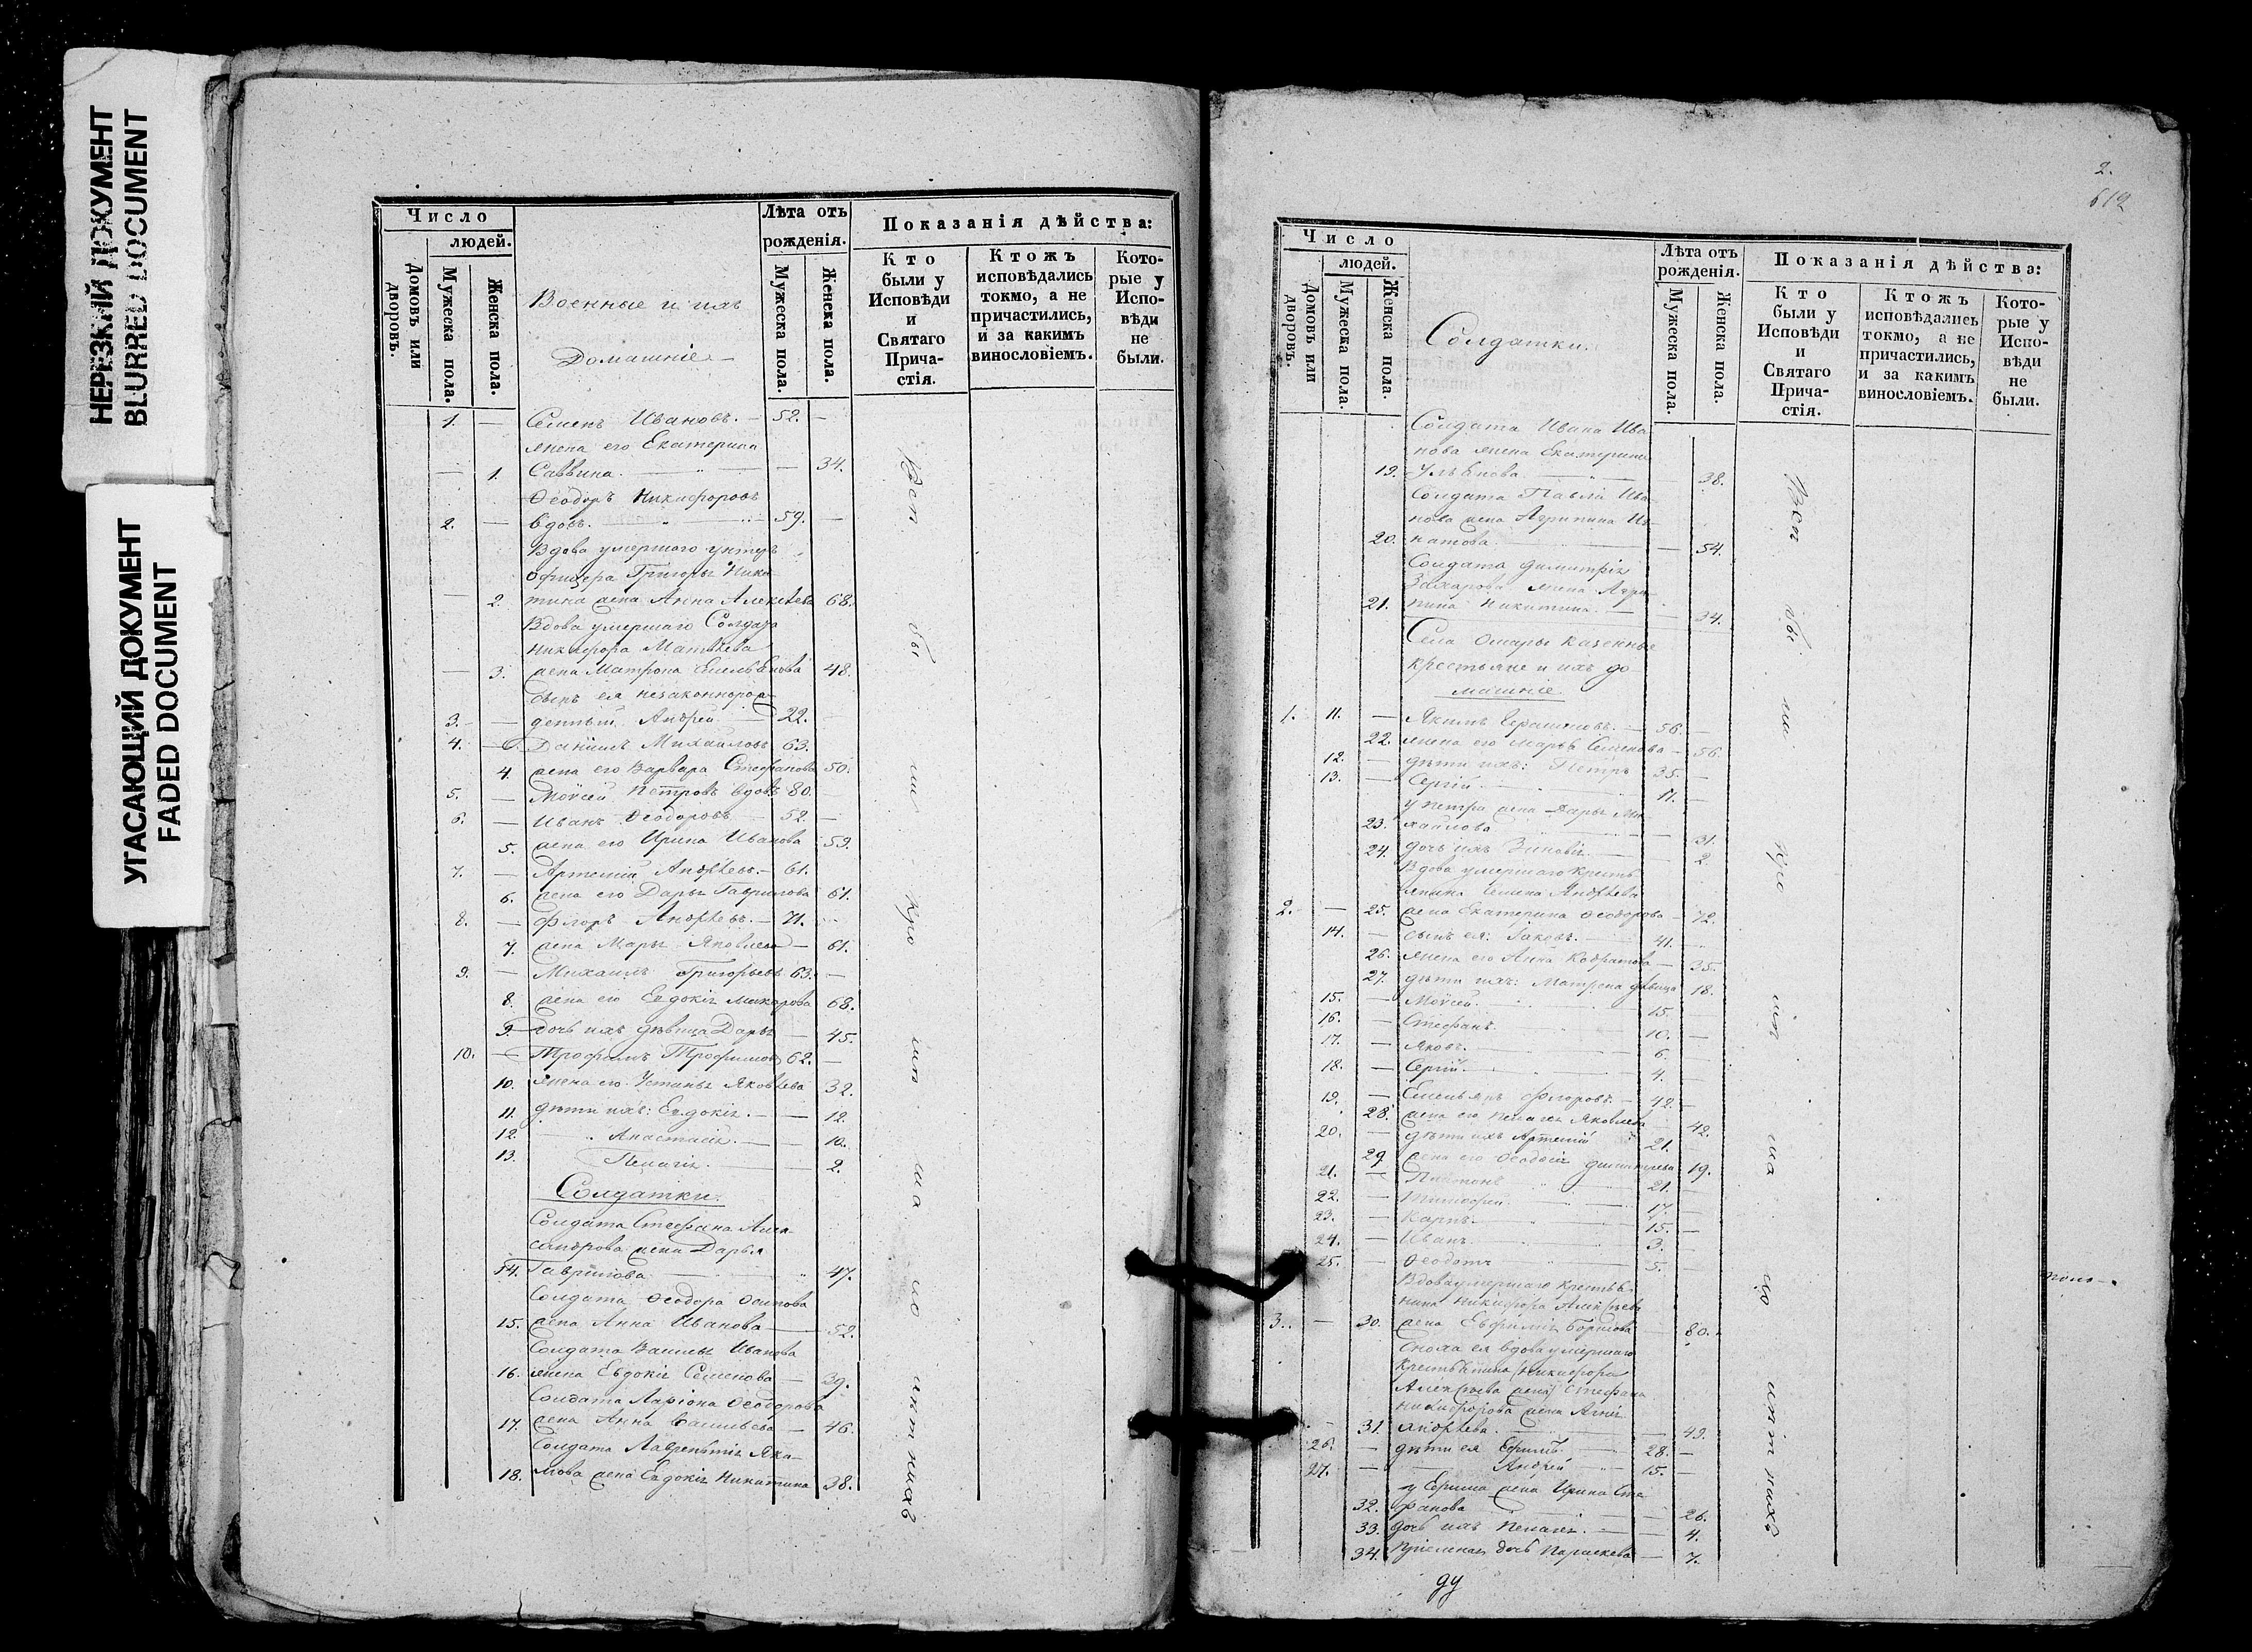 НЕРЕЗКИЙ ДОКУМЕНТ
BLURRED DOCUMENT
УГАСАЮЩИЙ ДОКУМЕНТ
FADED DOCUMENT
Число
людей.
Домовъ или дворовъ.
Мужеска пола.
Женска пола.
Военные и ихъ
Домашніе
Лѣта отъ рожденія.
Мужеска пола.
Женска пола.
Показанія дѣйства:
Кто были у Исповѣди и Святаго Причастія.
Ктожъ исповѣдались токмо, а не причастились, и за какимъ винословіемъ.
Которые у Исповѣди не были.
1. — Семенъ Ивановъ. — 52. —
жена его Екатерина
— 1. Саввина. — — 34.
Ѳеодоръ Никифоровъ
2. — вдовъ. — 59. —
Вдова умершаго унтеръ
офицера Григорья Ники-
— 2. тина жена Анна Алексѣева 68.
Вдова умершаго Солдата
Никифора Матвѣева
— 3. жена Матрона Емельянова 48.
сынъ ея незаконнорож-
3. — денный Андрей — 22. —
4. — Даніилъ Михайловъ 63.
4. жена его Варвара Стефанова 50.
5. — Моѵсей Петровъ вдовъ 80. —
6. — Иванъ Ѳеодоровъ — 52. —
5. жена его Ирина Иванова 59.
7. — Артемій Андрѣевъ. — 61.
6. жена его Дарья Гаврилова 61.
8. — Флоръ Андрѣевъ. — 71.
7. жена Марья Яковлева — 61.
9. — Михаилъ Григорьевъ 63. —
8. жена его Евдокія Макарова 68.
9. дочь ихъ дѣвица Дарья — 45.
10. — Трофимъ Трофимовъ 62. —
10. жена его Устинья Яковлева 32.
11. дѣти ихъ: Евдокія. — — 12.
12. Анастасія. — — 10.
13. Пелагія. — 2.
Солдатки.
Солдата Стефана Алек-
сандрова жена Дарья
14. Гаврилова — 47.
Солдата Ѳеодора Осипова
15. жена Анна Иванова — 52.
Солдата Василья Иванова
16. жена Евдокія Семенова — 39.
Солдата Ларіона Ѳеодорова
17. жена Анна Васильева — 46.
Солдата Лаврентія Яки-
18. мова жена Евдокія Никитина 38.
Вси бы ли
2.
612
Число
людей.
Домовъ или дворовъ.
Мужеска пола.
Женска пола.
Солдатки.
Лѣта отъ рожденія.
Мужеска пола.
Женска пола.
Показанія дѣйства:
Кто были у Исповѣди и Святаго Причастія.
Ктожъ исповѣдались токмо, а не причастились, и за какимъ винословіемъ.
Которые у Исповѣди не были.
Солдата Ивана Ива-
нова жена Екатерина
19. Ульянова — 38.
Солдата Павла Ива-
нова жена Агрипина Иг-
20. натова — 54.
Солдата Димитрія
Захарова жена Агри-
21. пина Никитина. — 34.
Села Омары казенные
крестьяне и ихъ до-
машніе.
1. 11. — Якимъ Герасимовъ. — 56. —
22. жена его Марья Семенова — 56.
12. — дѣти ихъ: Петръ 35. —
13. — Сергій 11. —
у Петра жена Дарья Ми-
23. хайлова — 31.
24. дочь ихъ Зиновія — 2.
Вдова умершаго кресть-
янина Семена Андрѣева
2. — 25. жена Екатерина Ѳеодорова — 72.
14. — сынъ ея: Іаковъ. — 41.
26. жена его Анна Кодратова — 35.
27. дѣти ихъ: Матрена дѣвица 18.
15. — Моѵсей 15. —
16. — Стефанъ 10. —
17. — Яковъ. 6. —
18. — Сергій. 4. —
19. — Емельянъ Флоровъ. — 42. —
28. жена его Пелагія Яковлева — 42.
20. — дѣти ихъ Артемій 21.
29 жена его Ѳеодосія Димитріева 19.
21. — Платонъ 21. —
22. — Тимофей 17. —
23. — Карпъ 15. —
24. — Иванъ 3. —
25. — Ѳеодотъ 5. —
Вдова умершаго кресть-
нина Никифора Алексѣева
3. — 30. жена Евфимія Борисова — 80.
Сноха ея вдова умершаго
крестьянина Никифора
Алексѣева Стефана
Никифорова жена
31. Андрѣева — 49.
26. — дѣти ея Ефимъ — 28. —
27. — Андрей 15. —
у Ефима жена Ирина Сте-
32. фанова — 26.
33. дочь ихъ Пелагія. — 4.
34. Пріемная дочь Параскева — 7.
Вси бы ли